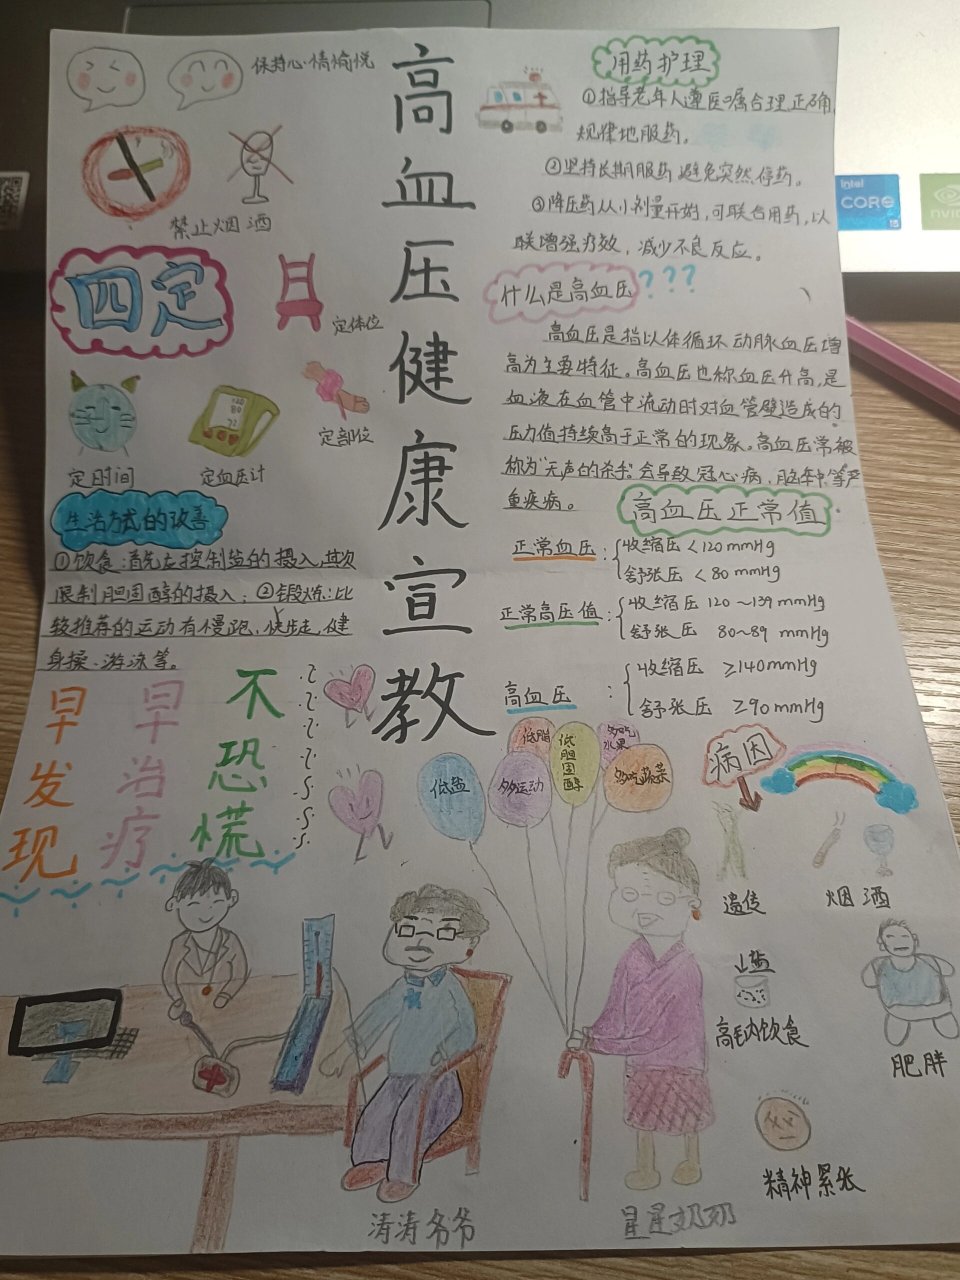 高血压健康宣教
保持心情愉悦
禁止烟酒
四定
定体位
定时间
定血压计
定部位
生活方式的改善
①饮食:首先应控制盐的摄入,其次
限制胆固醇的摄入;②锻炼:比
较推荐的运动有慢跑、快走、健
身操、游泳等。
早发现
早治疗
不恐慌
用药护理
①指导老年人遵医嘱合理正确
规律地服药。
②坚持长期服药 避免突然停药。
③降压药从小剂量开始,可联合用药,以
联增强疗效,减少不良反应。
什么是高血压???
高血压是指以体循环动脉血压增
高为主要特征。高血压也称血压升高,是
血液在血管中流动时对血管壁造成的
压力值持续高于正常的现象。高血压常被
称为"无声的杀手"会导致冠心病,脑卒中等严
重疾病。
高血压正常值
正常血压:{收缩压<120mmHg
舒张压<80mmHg
正常高压值:{收缩压 120~139mmHg
舒张压 80~89 mmHg
高血压:{收缩压 ≥140mmHg
舒张压 ≥90mmHg
低盐
多运动
低脂
低胆固醇
多吃水果
多吃蔬菜
病因
遗传
烟酒
盐
高钠饮食
肥胖
精神紧张
涛涛爷爷
星星奶奶
intel
CORE
i5